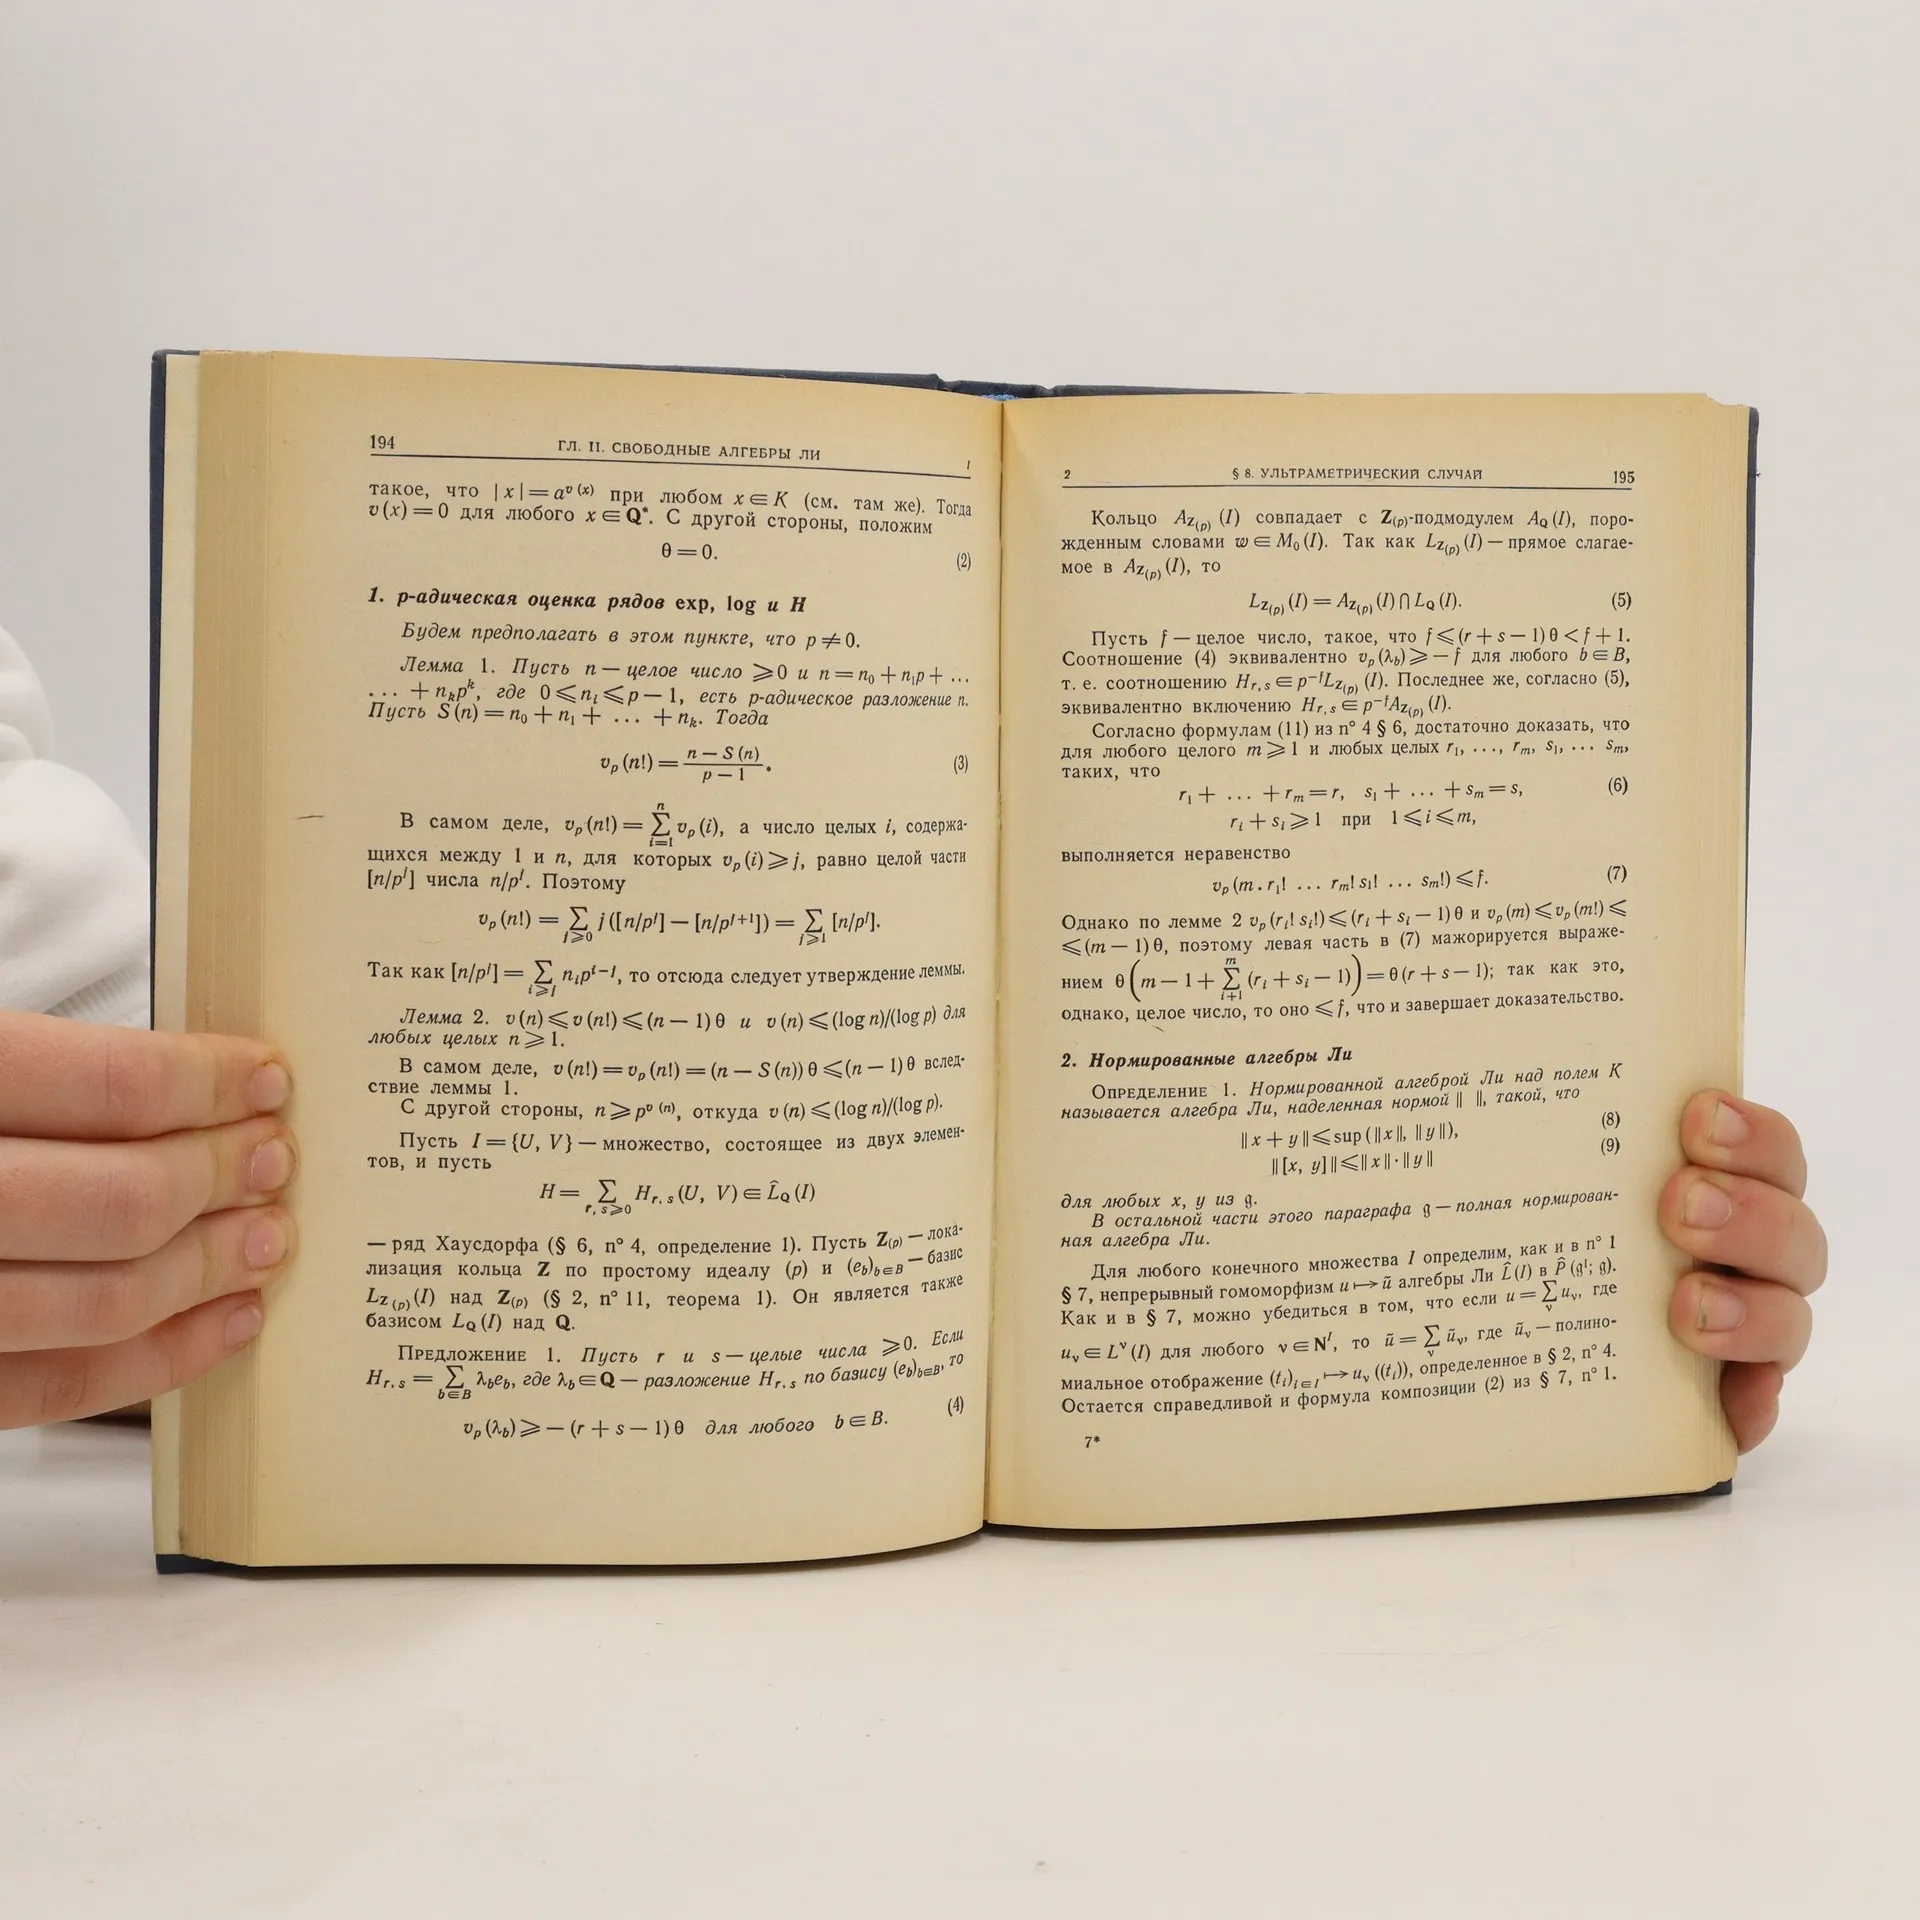 194
ГЛ. II. СВОБОДНЫЕ АЛГЕБРЫ ЛИ
1
такое, что |x| = a^{v(x)} при любом x ∈ K (см. там же). Тогда
v(x) = 0 для любого x ∈ Q*. С другой стороны, положим
θ = 0. (2)
1. p-адическая оценка рядов exp, log и H
Будем предполагать в этом пункте, что p ≠ 0.
Лемма 1. Пусть n — целое число ⩾ 0 и n = n₀ + n₁p + ...
... + n_k p^k, где 0 ⩽ n_i ⩽ p — 1, есть p-адическое разложение n.
Пусть S(n) = n₀ + n₁ + ... + n_k. Тогда
v_p(n!) = \frac{n — S(n)}{p — 1}. (3)
В самом деле, v_p(n!) = \sum_{i=1}^{n} v_p(i), а число целых i, содержа-
щихся между 1 и n, для которых v_p(i) ⩾ j, равно целой части
[n/p^j] числа n/p^j. Поэтому
v_p(n!) = \sum_{j⩾0} j([n/p^j] — [n/p^{j+1}]) = \sum_{j⩾1} [n/p^j].
Так как [n/p^j] = \sum_{i⩾j} n_i p^{i-j}, то отсюда следует утверждение леммы.
Лемма 2. v(n) ⩽ v(n!) ⩽ (n — 1)θ и v(n) ⩽ (log n)/(log p) для
любых целых n ⩾ 1.
В самом деле, v(n!) = v_p(n!) = (n — S(n))θ ⩽ (n — 1)θ вслед-
ствие леммы 1.
С другой стороны, n ⩾ p^{v(n)}, откуда v(n) ⩽ (log n)/(log p).
Пусть I = {U, V} — множество, состоящее из двух элемен-
тов, и пусть
H = \sum_{r, s⩾0} H_{r, s}(U, V) ∈ \hat{L}_Q(I)
— ряд Хаусдорфа (§ 6, n° 4, определение 1). Пусть Z_{(p)} — лока-
лизация кольца Z по простому идеалу (p) и (e_b)_{b∈B} — базис
L_{Z_{(p)}}(I) над Z_{(p)} (§ 2, n° 11, теорема 1). Он является также
базисом L_Q(I) над Q.
ПРЕДЛОЖЕНИЕ 1. Пусть r и s — целые числа ⩾ 0. Если
H_{r, s} = \sum_{b∈B} λ_b e_b, где λ_b ∈ Q — разложение H_{r, s} по базису (e_b)_{b∈B}, то
v_p(λ_b) ⩾ — (r + s — 1)θ для любого b ∈ B. (4)
2
§ 8. УЛЬТРАМЕТРИЧЕСКИЙ СЛУЧАЙ
195
Кольцо A_{Z_{(p)}}(I) совпадает с Z_{(p)}-подмодулем A_Q(I), поро-
жденным словами w ∈ M₀(I). Так как L_{Z_{(p)}}(I) — прямое слагае-
мое в A_{Z_{(p)}}(I), то
L_{Z_{(p)}}(I) = A_{Z_{(p)}}(I) ∩ L_Q(I). (5)
Пусть f — целое число, такое, что f ⩽ (r + s — 1)θ < f + 1.
Соотношение (4) эквивалентно v_p(λ_b) ⩾ — f для любого b ∈ B,
т. е. соотношению H_{r, s} ∈ p^{-f}L_{Z_{(p)}}(I). Последнее же, согласно (5),
эквивалентно включению H_{r, s} ∈ p^{-f}A_{Z_{(p)}}(I).
Согласно формулам (11) из n° 4 § 6, достаточно доказать, что
для любого целого m ⩾ 1 и любых целых r₁, ..., r_m, s₁, ... s_m,
таких, что
r₁ + ... + r_m = r, s₁ + ... + s_m = s, (6)
r_i + s_i ⩾ 1 при 1 ⩽ i ⩽ m,
выполняется неравенство
v_p(m . r₁! ... r_m! s₁! ... s_m!) ⩽ f. (7)
Однако по лемме 2 v_p(r_i! s_i!) ⩽ (r_i + s_i — 1)θ и v_p(m) ⩽ v_p(m!) ⩽
⩽ (m — 1)θ, поэтому левая часть в (7) мажорируется выраже-
нием θ(m — 1 + \sum_{i+1}^{m} (r_i + s_i — 1)) = θ(r + s — 1); так как это,
однако, целое число, то оно ⩽ f, что и завершает доказательство.
2. Нормированные алгебры Ли
ОПРЕДЕЛЕНИЕ 1. Нормированной алгеброй Ли над полем K
называется алгебра Ли, наделенная нормой || ||, такой, что
||x + y|| ⩽ sup(||x||, ||y||), (8)
||[x, y]|| ⩽ ||x|| · ||y|| (9)
для любых x, y из 𝔤.
В остальной части этого параграфа 𝔤 — полная нормирован-
ная алгебра Ли.
Для любого конечного множества I определим, как и в n° 1
§ 7, непрерывный гомоморфизм u ↦ ũ алгебры Ли \hat{L}(I) в \hat{P}(𝔤^I; 𝔤).
Как и в § 7, можно убедиться в том, что если u = \sum_{ν} u_ν, где
u_ν ∈ L^ν(I) для любого ν ∈ N^I, то ũ = \sum_{ν} ũ_ν, где ũ_ν — полино-
миальное отображение (t_i)_{i∈I} ↦ u_ν((t_i)), определенное в § 2, n° 4.
Остается справедливой и формула композиции (2) из § 7, n° 1.
7*